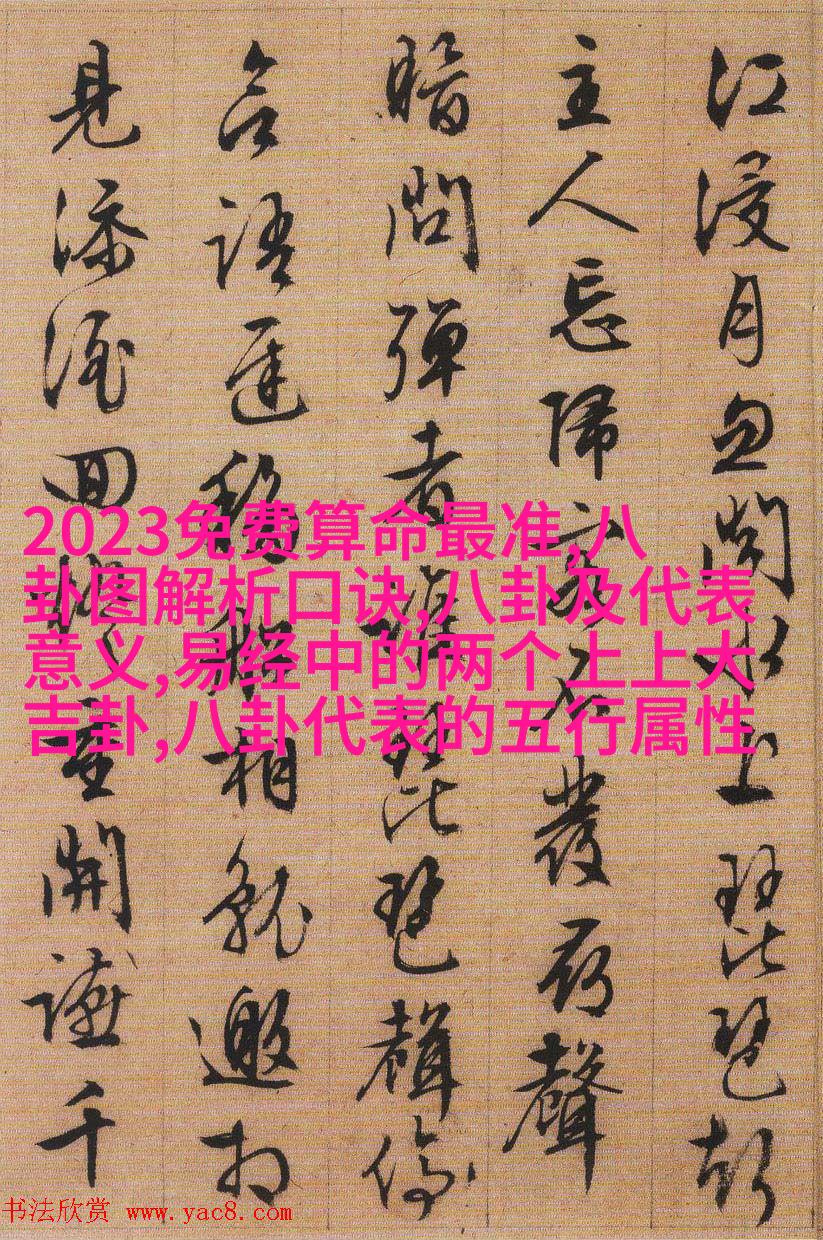 江浸月忽聞水上琵琶聲
主人忘歸客不發尋聲
暗問彈者誰琵琶聲停
語遲移船相就邀相
見添酒回燈重開讌千
2023免费算命最准,八
卦图解析口诀,八卦及代表
意义,易经中的两个上上大
吉卦,八卦代表的五行属性
书法欣赏 www.yac8.com